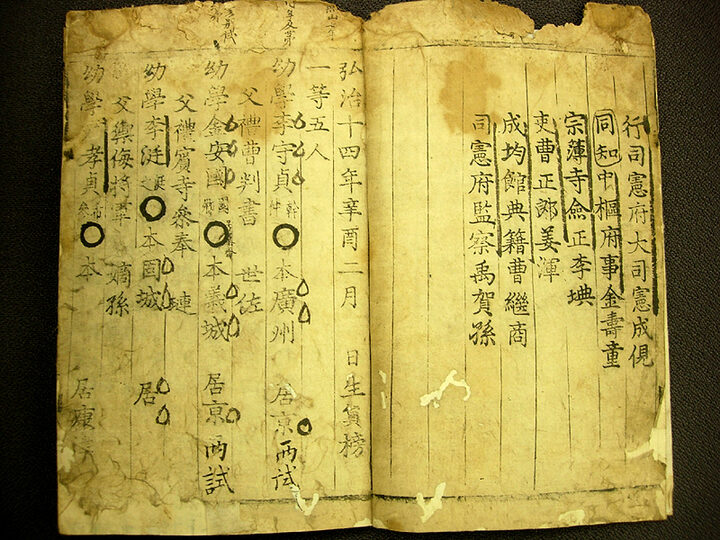 行司憲府大司憲成俔
同知中樞府事金壽童
宗薄寺僉正李㙉
吏曹正郎姜渾
成均館典籍曹繼商
司憲府監察禹賀孫
弘治十四年辛酉二月 日生貟榜
一等五人
幼學李守貞 幹 本廣州 居京兩試
父禮曹判書 世佐
幼學金安國 國 本義城 居京兩試
父禮賓寺參奉 璉
幼學李 之 本固城 居
父禦侮將軍 嫡孫
幼學 孝貞 本 居康